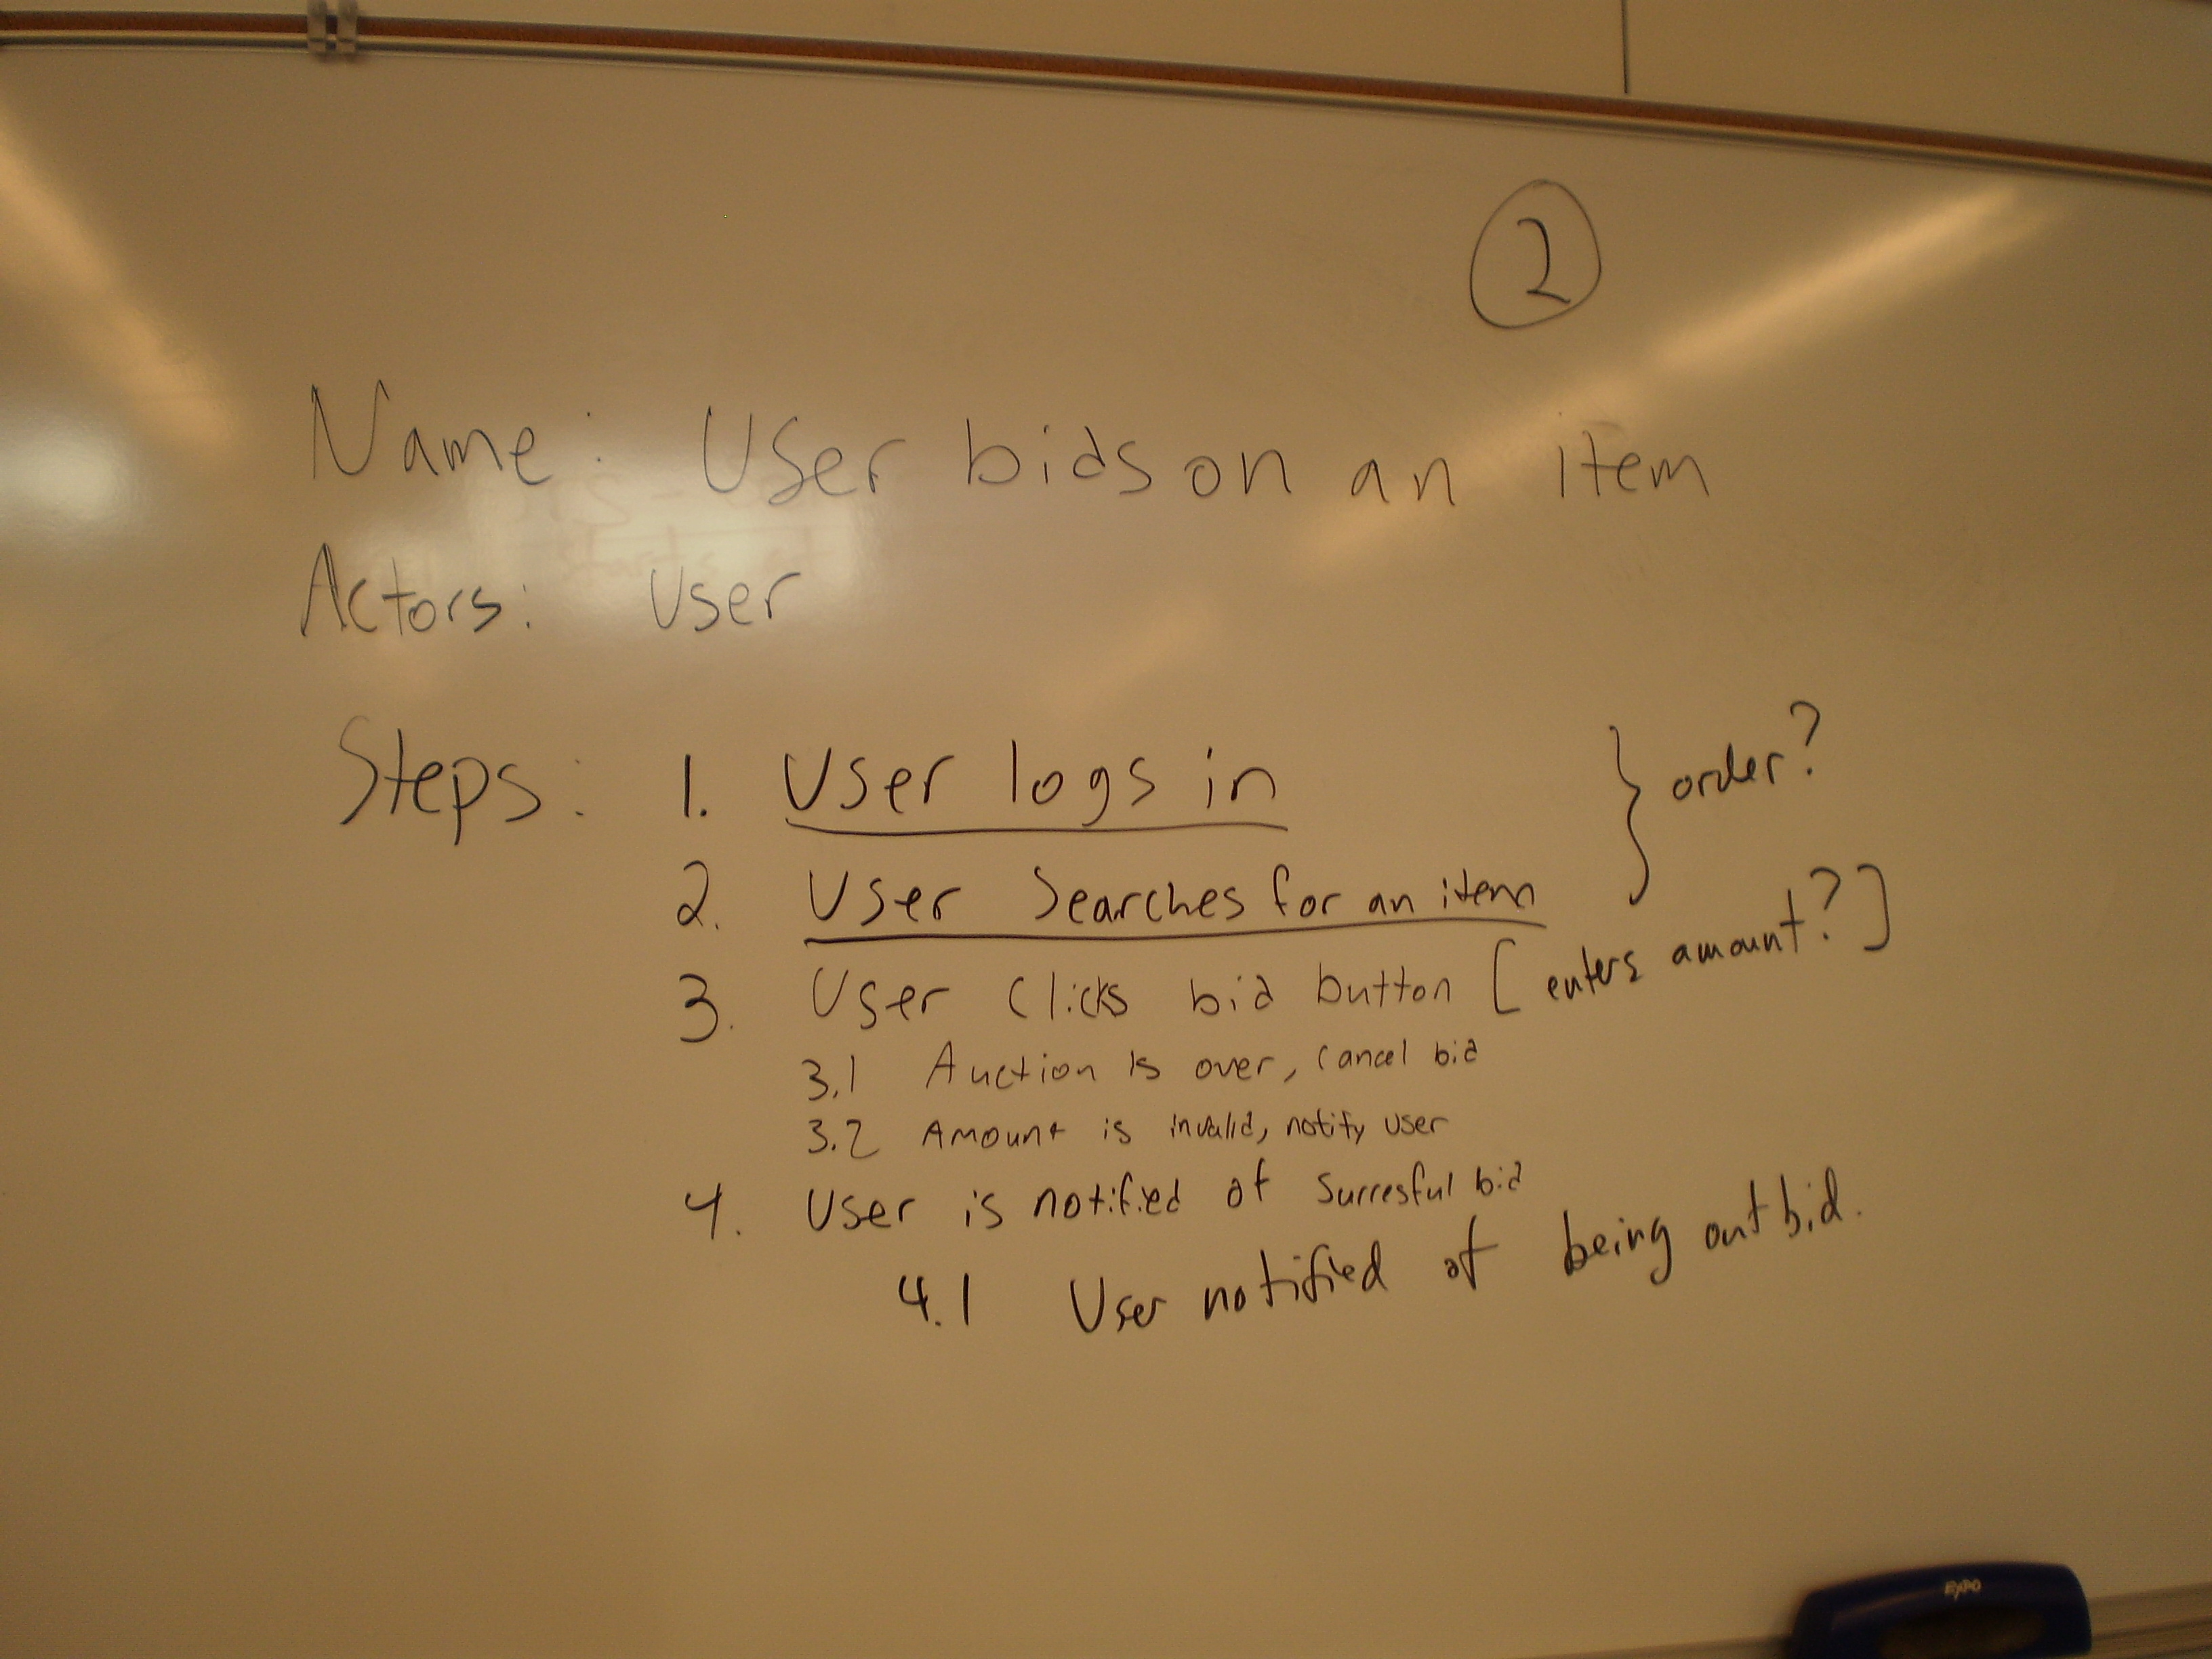 2
Name: User bids on an item
Actors: User
Steps: 1. User logs in } order?
2. User Searches for an item
3. User Clicks bid button [enters amount?]
3.1 Auction is over, cancel bid
3.2 Amount is invalid, notify user
4. User is notified of Surresful bid
4.1 User notified of being outbid.
EXPO